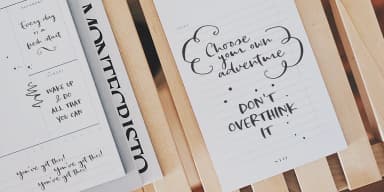 Every day
is a
fresh start
WAKE UP
& DO
ALL THAT
YOU CAN
you've got this!
you've got this!
you've got this!
MONTECRISTO
Choose
your own
adventure
DON'T
OVERTHINK
IT